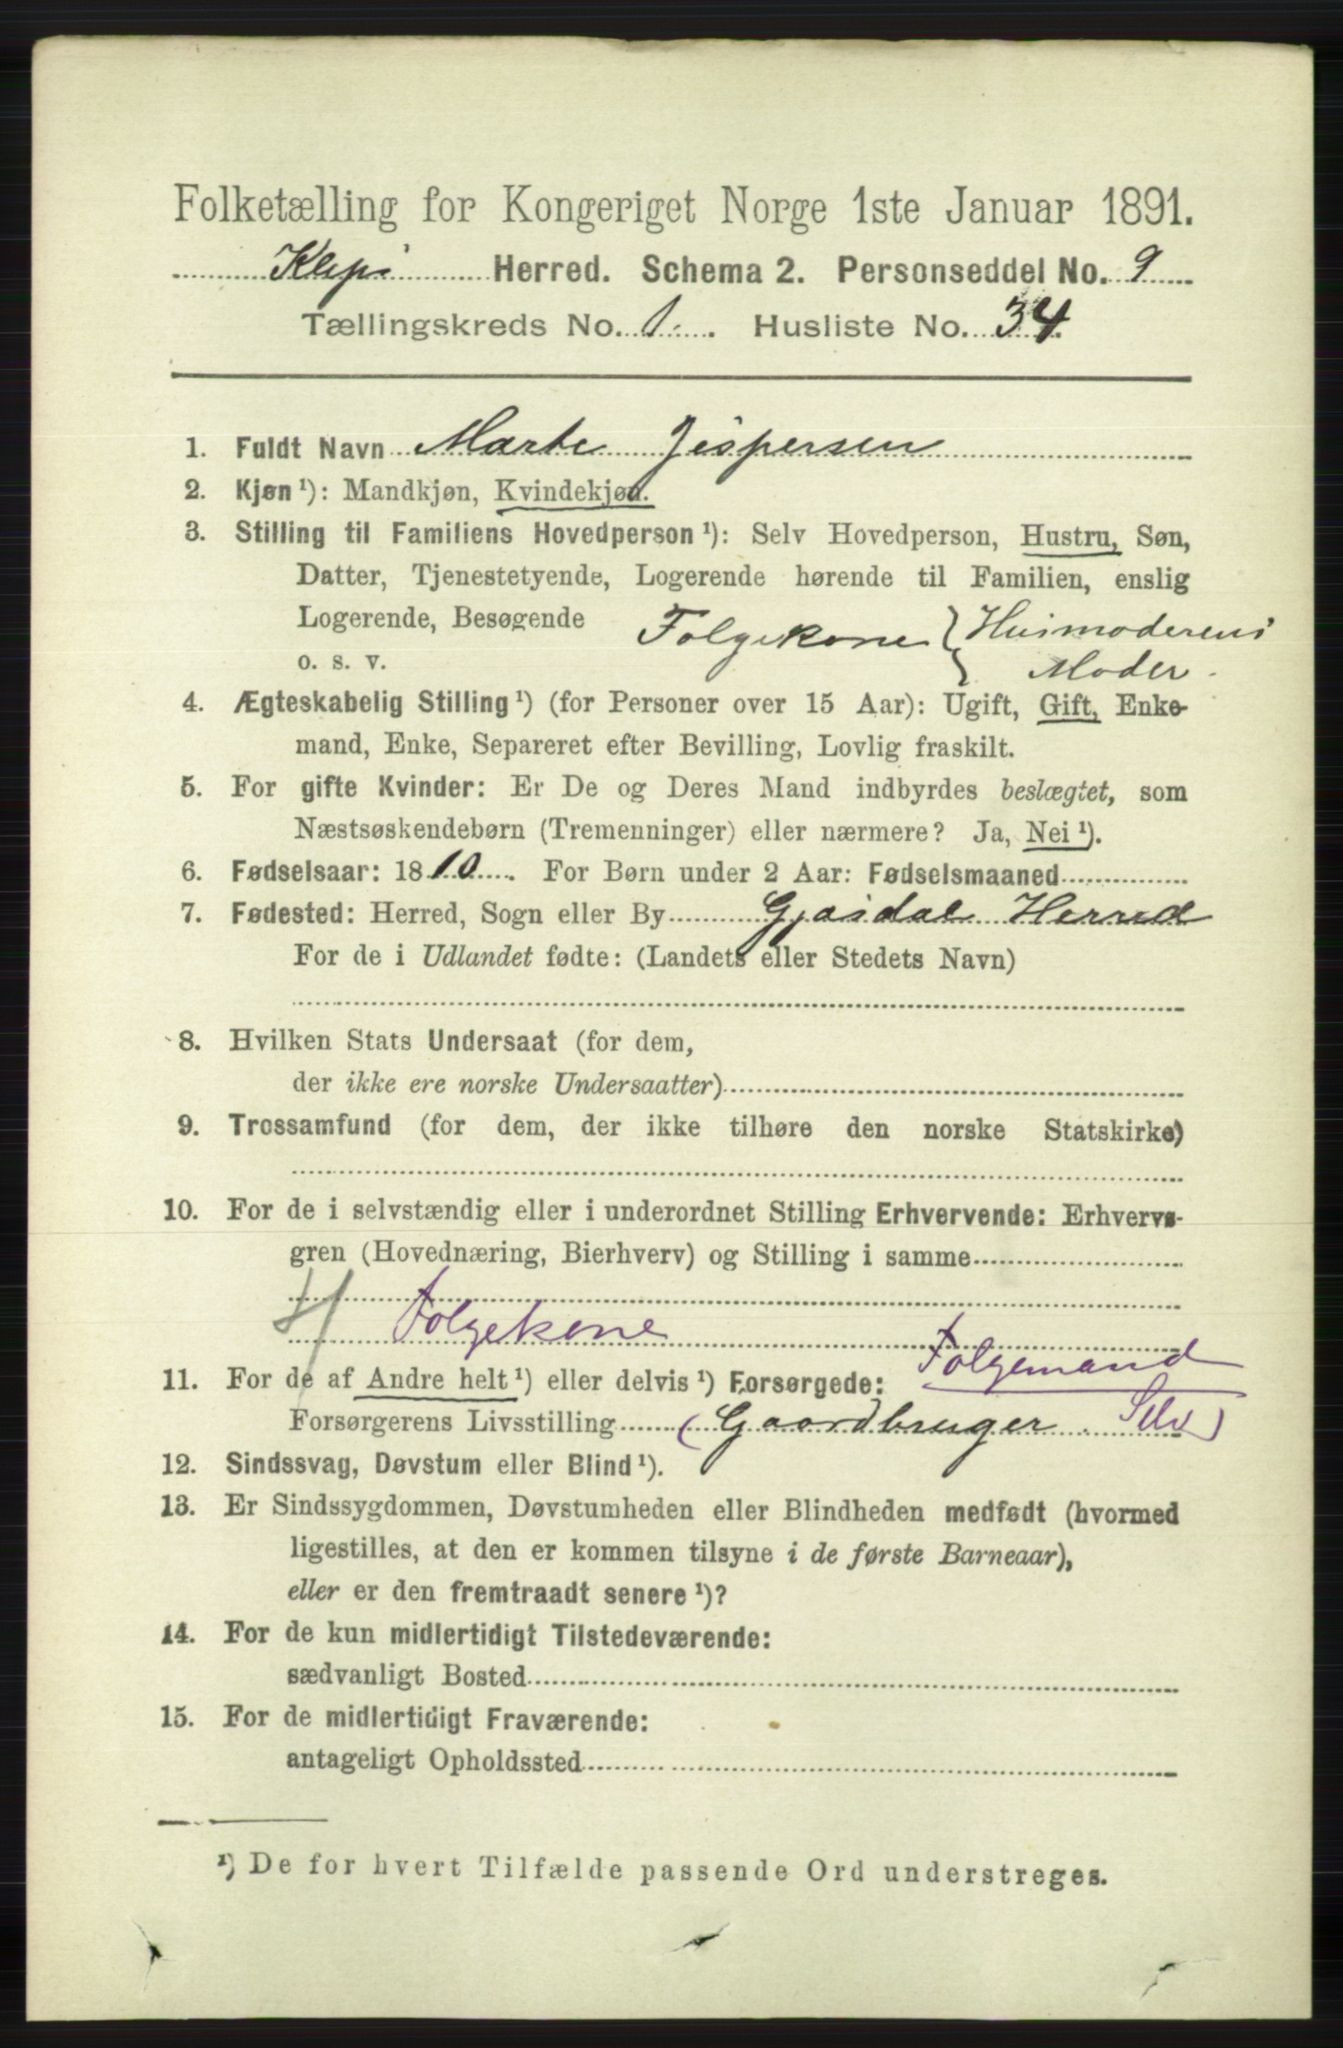 Folketælling for Kongeriget Norge 1ste Januar 1891.
Klepi Herred. Schema 2. Personseddel No. 9
Tællingskreds No. 1. Husliste No. 34
1. Fuldt Navn Marte Jespersen
2. Kjøn ¹): Mandkjøn, Kvindekjøn.
3. Stilling til Familiens Hovedperson ¹): Selv Hovedperson, Hustru, Søn,
Datter, Tjenestetyende, Logerende hørende til Familien, enslig
Logerende, Besøgende Folgekone } Husmoderens
o. s. v. Moder
4. Ægteskabelig Stilling ¹) (for Personer over 15 Aar): Ugift, Gift, Enke-
mand, Enke, Separeret efter Bevilling, Lovlig fraskilt.
5. For gifte Kvinder: Er De og Deres Mand indbyrdes beslægtet, som
Næstsøskendebørn (Tremenninger) eller nærmere? Ja, Nei ¹).
6. Fødselsaar: 1810. For Børn under 2 Aar: Fødselsmaaned
7. Fødested: Herred, Sogn eller By Gjæsdal Herred
For de i Udlandet fødte: (Landets eller Stedets Navn)
8. Hvilken Stats Undersaat (for dem,
der ikke ere norske Undersaatter)
9. Trossamfund (for dem, der ikke tilhøre den norske Statskirke)
10. For de i selvstændig eller i underordnet Stilling Erhvervende: Erhvervs-
gren (Hovednæring, Bierhverv) og Stilling i samme
Folgekone
Folgemand
11. For de af Andre helt ¹) eller delvis ¹) Forsørgede:
Forsørgerens Livsstilling (Gaardbruger Selv)
12. Sindssvag, Døvstum eller Blind ¹).
13. Er Sindssygdommen, Døvstumheden eller Blindheden medfødt (hvormed
ligestilles, at den er kommen tilsyne i de første Barneaar),
eller er den fremtraadt senere ¹)?
14. For de kun midlertidigt Tilstedeværende:
sædvanligt Bosted
15. For de midlertidigt Fraværende:
antageligt Opholdssted
¹) De for hvert Tilfælde passende Ord understreges.